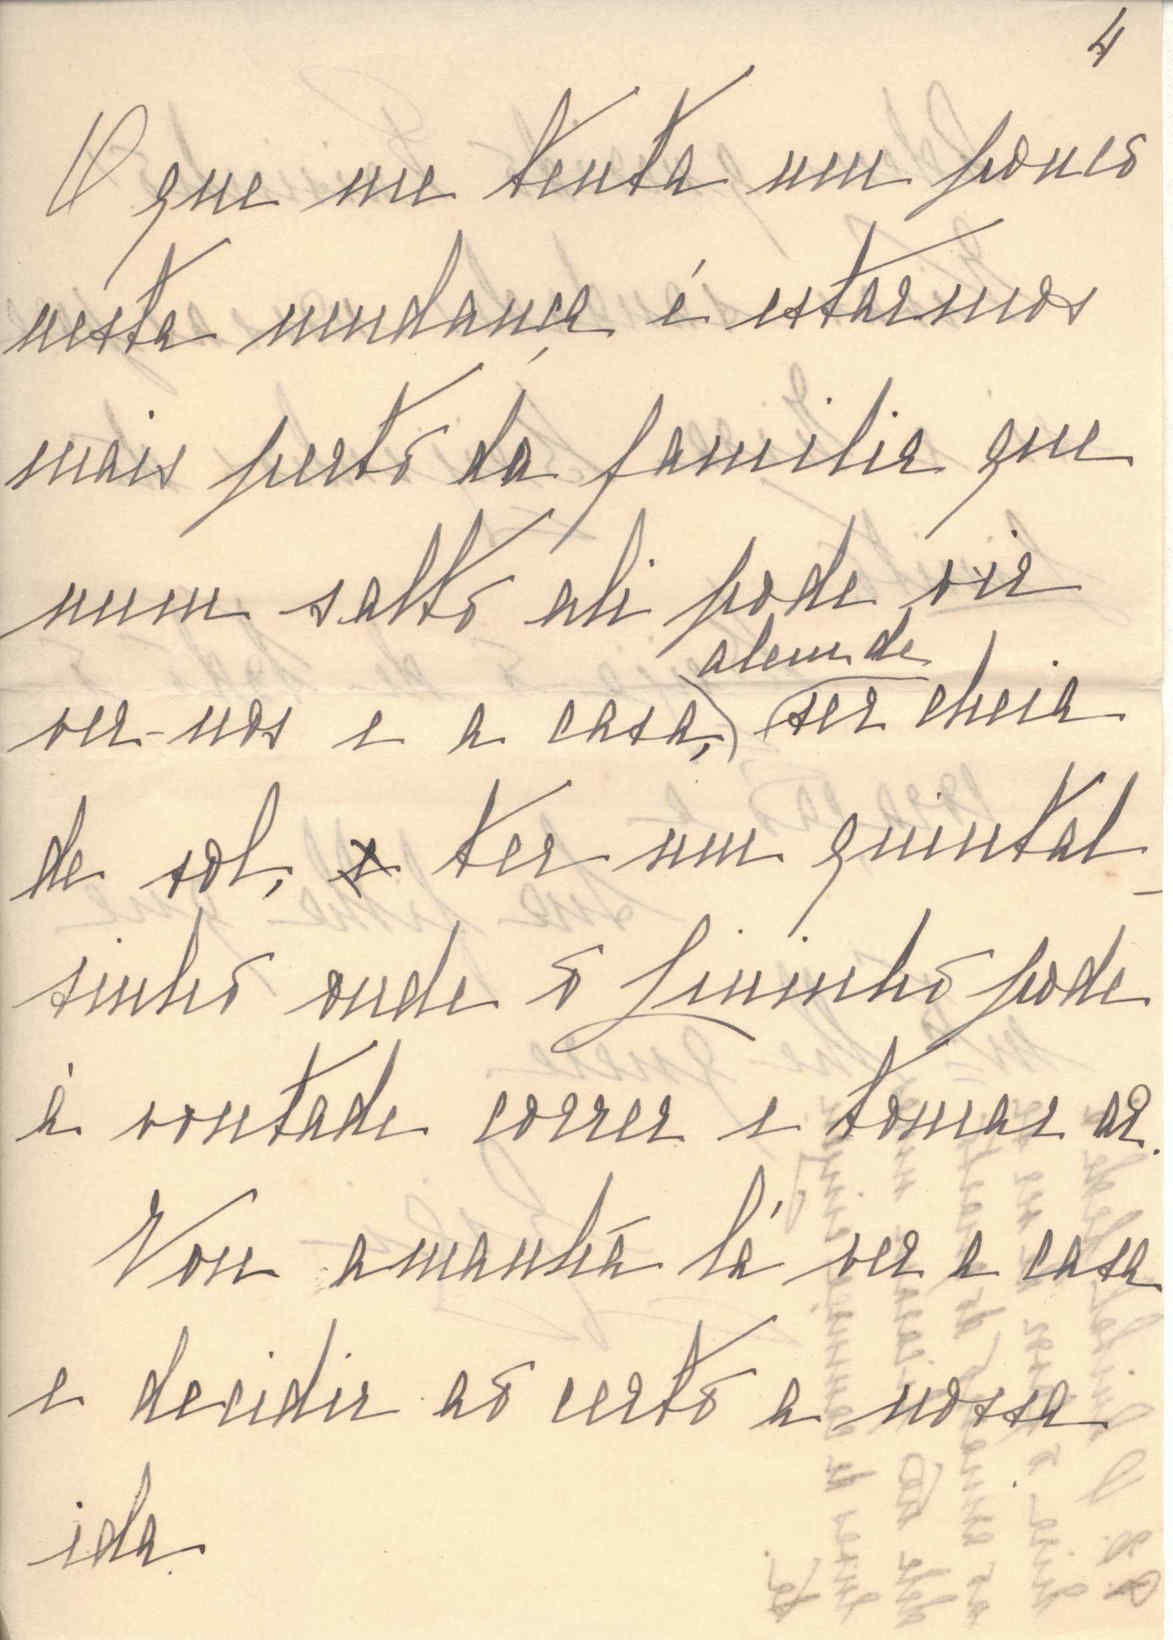 4
O que me tenta um pouco
nesta mudança é estarmos
mais perto da familia que
num salto ali pode vir
alem de
ver-nos e a casa,) (ser cheia
de sol, e ter um quintal-
sinho onde o Lininho pode
à vontade correr e tomar ar.
Vou amanhã lá ver a casa
e decidir ao certo a nossa
ida.